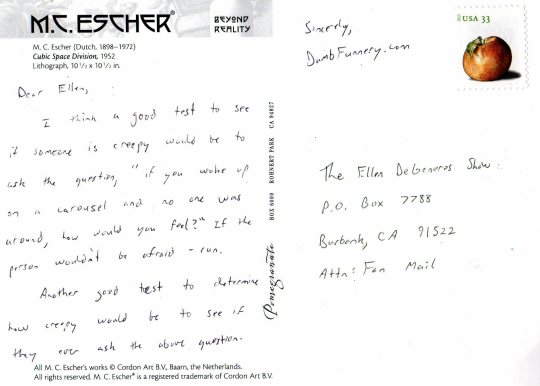 M.C. ESCHER®
BEYOND
REALITY
M. C. Escher (Dutch, 1898–1972)
Cubic Space Division, 1952
Lithograph, 10 1/2 x 10 1/2 in.
Dear Ellen,
I think a good test to see
if someone is creepy would be to
ask the question, "if you woke up
on a carousel and no one was
around, how would you feel?" If the
person wouldn't be afraid - run.
Another good test to determine
how creepy would be to see if
they ever ask the above question.
All M. C. Escher's works © Cordon Art B.V., Baarn, the Netherlands.
All rights reserved. M. C. Escher® is a registered trademark of Cordon Art B.V.
Pomegranate
BOX 6099 ROHNERT PARK CA 94927
Sincerely,
DumbFunnery.com
USA 33
The Ellen DeGeneres Show
P.O. Box 7788
Burbank, CA 91522
Attn: Fan Mail